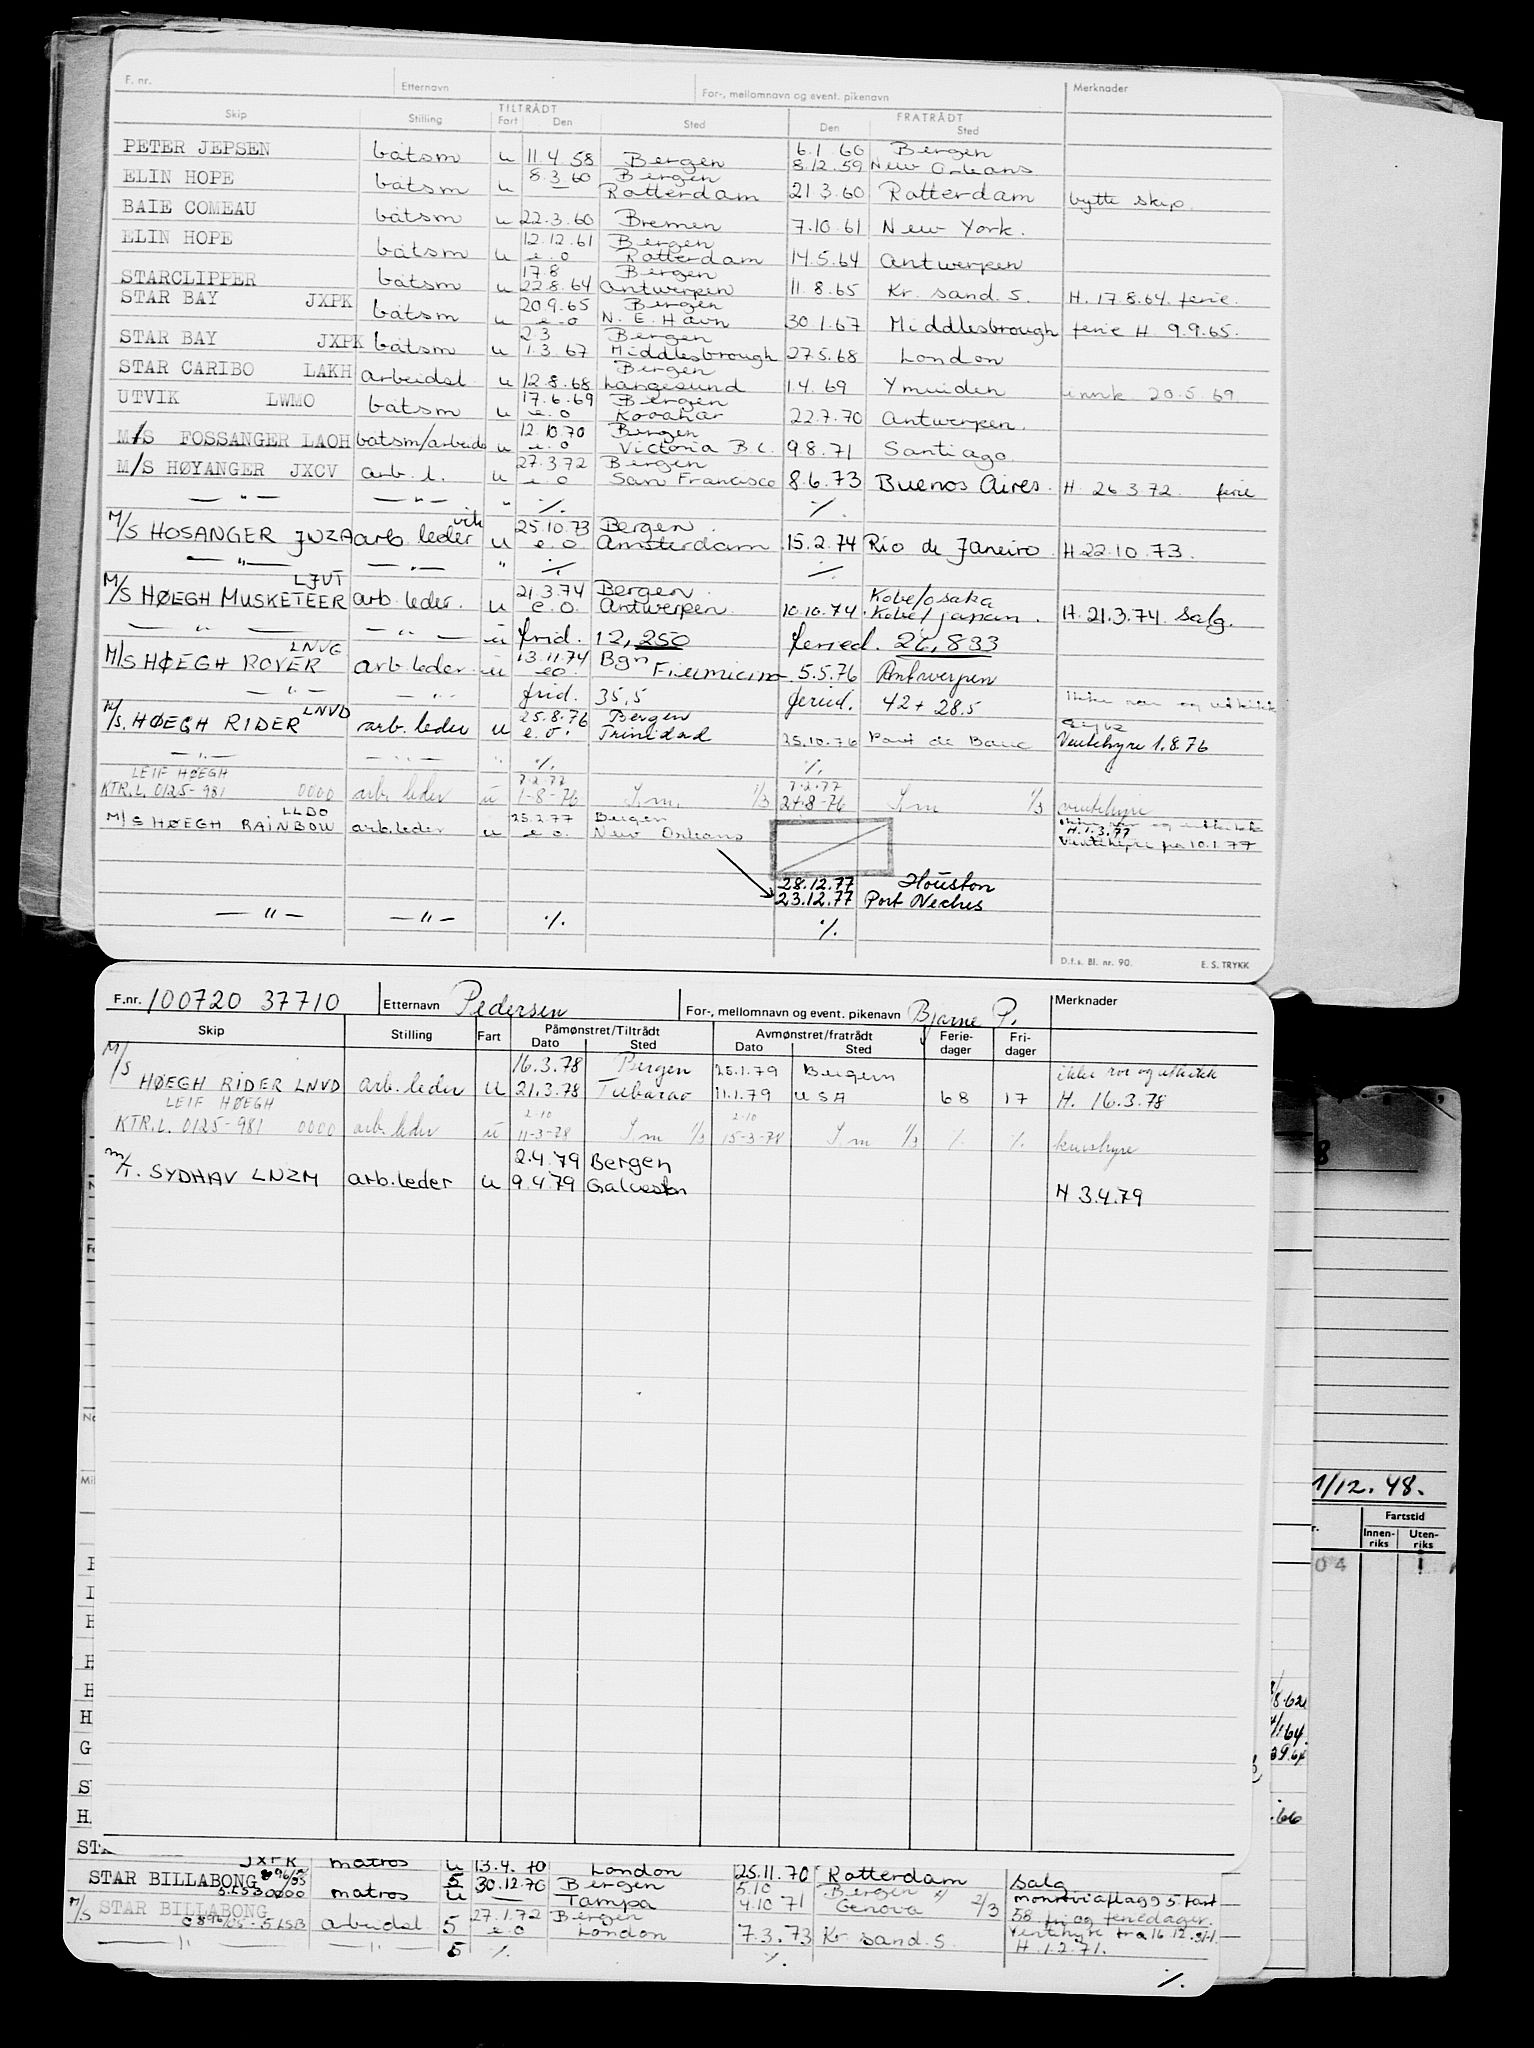 F. nr. Etternavn For-, mellomnavn og event. pikenavn Merknader
Skip Stilling TILTRÅDT Fart Den Sted FRATRÅDT Den Sted
6.1.60 Bergen
PETER JEPSEN båtsm u 11.4.58 Bergen 8.12.59 New Orleans
8.3.60 Bergen
ELIN HOPE båtsm u — Rotterdam 21.3.60 Rotterdam bytte skip.
BAIE COMEAU båtsm u 22.3.60 Bremen 7.10.61 New York.
12.12.61 Bergen
ELIN HOPE båtsm u e.o Rotterdam 14.5.64 Antwerpen
17.8 Bergen
STARCLIPPER båtsm u 22.8.64 Antwerpen 11.8.65 Kr. sand. S. H. 17.8.64. ferie.
20.9.65 Bergen
STAR BAY JXPK båtsm u e.o N.E. Havn 30.1.67 Middlesbrough ferie H 9.9.65.
2.3 Bergen
STAR BAY JXPK båtsm u 1.3.67 Middlesbrough 27.5.68 London
Bergen
STAR CARIBO LAKH arbeidsl u 12.8.68 Langesund 1.4.69 Ymuiden innk 20.5.69
17.6.69 Bergen
UTVIK LWMO båtsm u e.o 22.7.70 Antwerpen.
12.10.70 Bergen
M/S FOSSANGER LAOH båtsm/arbeids u e.o Victoria B.C. 9.8.71 Santiago
27.3.72 Bergen
M/S HØYANGER JXCV arb. l. u e.o San Francisco 8.6.73 Buenos Aires. H. 26.3.72. ferie
— " — — " — " ./. ./.
vik 25.10.73 Bergen
M/S HOSANGER JUZA arb. leder u e.o Amsterdam 15.2.74 Rio de Janeiro. H 22.10.73.
— " — — " — " ./. ./.
LJVT 21.3.74 Bergen. Kobe/osaka
M/S HØEGH MUSKETEER arb. leder. u e.o. Antwerpen. 10.10.74. Kobe/japan. H. 21.3.74. Salg.
— " — — " — u frid. 12,250 feried. 26,833
LNVG 13.11.74 Bgn
M/S HØEGH ROVER arb. leder u eo. Fiumicino 5.5.76 Antwerpen
— " — — " — frid. 35,5 feried. 42 + 28.5
LNVD 25.8.76 Bergen
M/S. HØEGH RIDER arb. leder u e.o. Trinidad 25.10.76 Port de Bouc Ventehyre 1.8.76
— " — — " — " ./. ./.
LEIF HØEGH 7.2.77 7.2.77
KTR.L. 0125-981 0000 arb. leder u 1-8-76 I.m. 1/3 24-8-76 I.m 1/3 ventehyre
LLDO 25.2.77 Bergen H. 1.3.77
M/S HØEGH RAINBOW arb.leder u e.o. New Orleans Ventehyre fra 10.1.77
28.12.77 Houston
23.12.77 Port Neches
— " — — " — ./. ./.
D.f.s. Bl. nr. 90. E. S. TRYKK
F.nr. 100720 37710 Etternavn Pedersen For-, mellomnavn og event. pikenavn Bjarne P. Merknader
Skip Stilling Fart Påmønstret/Tiltrådt Dato Sted Avmønstret/fratrådt Dato Sted Ferie-dager Fri-dager
M/S 16.3.78 Bergen 25.1.79 Bergen ikke ror og utkikk
HØEGH RIDER LNVD arb.leder u 21.3.78 Tubarao 11.1.79 USA 68 17 H. 16.3.78
LEIF HØEGH 2-10 2-10
KTR.L. 0125-981 0000 arb.leder u 11-3-78 I.m 1/3 15-3-78 I.m 1/3 ./. ./. kurshyre
2.4.79 Bergen
M/T. SYDHAV LNZM arb.leder u 9.4.79 Galveston H 3.4.79
1/12.48.
Fartstid
Innen-riks Uten-riks
04 1
JXPK matros u 13.4.70 London 25.11.70 Rotterdam Salg
STAR BILLABONG 5 30.12.70 Bergen 5.10 Bergen
matros u — Tampa 4.10.71 Genova 2/3
M/S STAR BILLABONG 27.1.72 Bergen 58 fri og feriedager.
arbeidsl. 5 e.o London 7.3.73 Kr sand. S. Ventehyre fra 16.12.
— " — " 5 ./. ./. H. 1.2.71.
./.